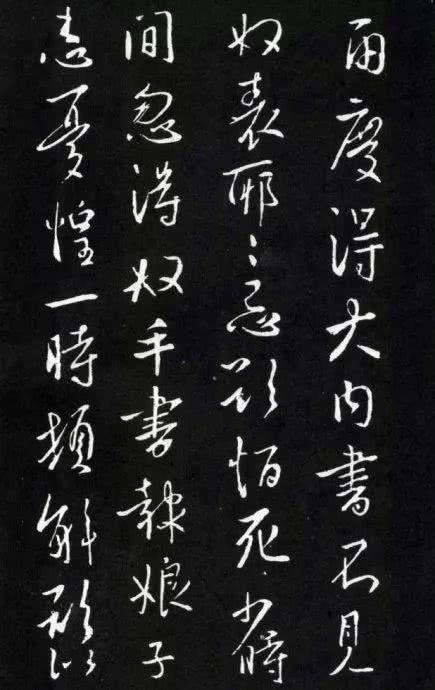 両度得大内书不见
奴表耶耶忌欲恒死少時
间忽得奴手書報娘子
患憂惶一時頓解欣悦